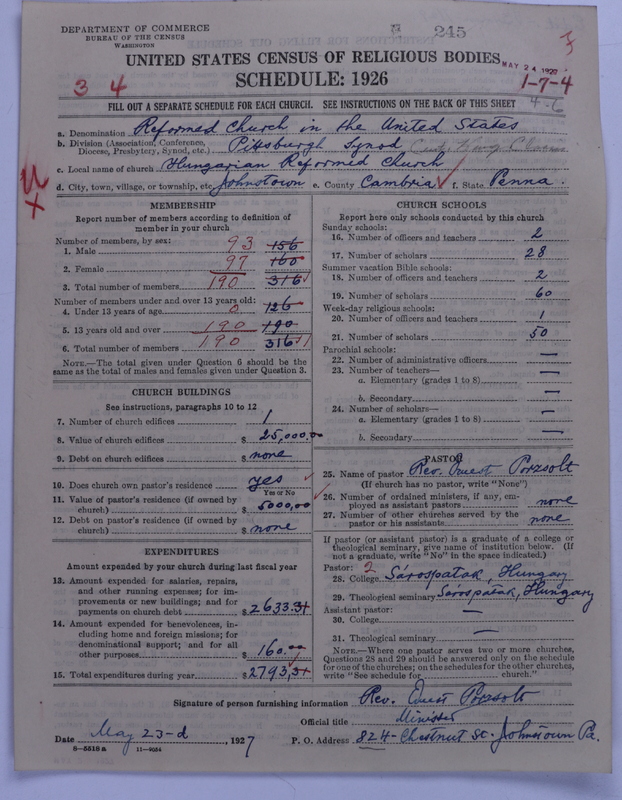 DEPARTMENT OF COMMERCE
BUREAU OF THE CENSUS
WASHINGTON
245
UNITED STATES CENSUS OF RELIGIOUS BODIES
MAY 24 192
SCHEDULE: 1926
3 4
1-7-4
FILL OUT A SEPARATE SCHEDULE FOR EACH CHURCH. SEE INSTRUCTIONS ON THE BACK OF THIS SHEET
4-6
a. Denomination Reformed Church in the United States
b. Division (Association, Conference, Diocese, Presbytery, Synod, etc.) Pittsburgh Synod
c. Local name of church Hungarian Reformed Church
d. City, town, village, or township, etc. Johnstown e. County Cambria f. State Penna.
MEMBERSHIP
Report number of members according to definition of member in your church
Number of members, by sex:
1. Male 93 156
2. Female 97 160
3. Total number of members 190 316
Number of members under and over 13 years old:
4. Under 13 years of age 0 126
5. 13 years old and over 190 190
6. Total number of members 190 316
NOTE.—The total given under Question 6 should be the same as the total of males and females given under Question 3.
CHURCH BUILDINGS
See instructions, paragraphs 10 to 12
7. Number of church edifices 1
8. Value of church edifices $ 25,000,00
9. Debt on church edifices $ none
10. Does church own pastor's residence yes
Yes or No
11. Value of pastor's residence (if owned by church) $ 5000,00
12. Debt on pastor's residence (if owned by church) $ none
EXPENDITURES
Amount expended by your church during last fiscal year
13. Amount expended for salaries, repairs, and other running expenses; for improvements or new buildings; and for payments on church debt $ 2633.34
14. Amount expended for benevolences, including home and foreign missions; for denominational support; and for all other purposes $ 160,00
15. Total expenditures during year $ 2793,34
CHURCH SCHOOLS
Report here only schools conducted by this church
Sunday schools:
16. Number of officers and teachers 2
17. Number of scholars 28
Summer vacation Bible schools:
18. Number of officers and teachers 2
19. Number of scholars 60
Week-day religious schools:
20. Number of officers and teachers 1
21. Number of scholars 50
Parochial schools:
22. Number of administrative officers —
23. Number of teachers—
a. Elementary (grades 1 to 8) —
b. Secondary —
24. Number of scholars—
a. Elementary (grades 1 to 8) —
b. Secondary —
PASTOR
25. Name of pastor Rev. Ernest Porzsolt
(If church has no pastor, write "None")
26. Number of ordained ministers, if any, employed as assistant pastors none
27. Number of other churches served by the pastor or his assistants none
If pastor (or assistant pastor) is a graduate of a college or theological seminary, give name of institution below. (If not a graduate, write "No" in the space indicated.)
Pastor: 2
28. College Sárospatak, Hungary
29. Theological seminary Sárospatak, Hungary
Assistant pastor:
30. College —
31. Theological seminary —
NOTE.—Where one pastor serves two or more churches, Questions 28 and 29 should be answered only on the schedule for one of the churches; on the schedules for the other churches, write "See schedule for church."
Signature of person furnishing information Rev. Ernest Porzsolt
Official title Minister
Date May 23-d, 1927 P. O. Address 824 Chestnut St. Johnstown Pa.
8-5518 a 11-9034